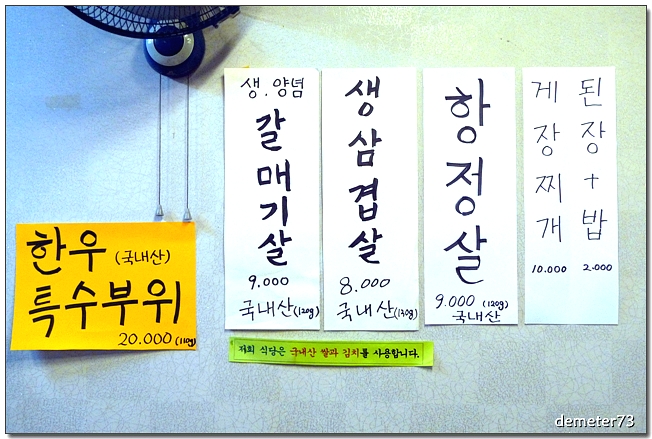 한우 (국내산)
특수부위
20.000 (110g)
생.양념
갈매기살
9.000
국내산(120g)
생삼겹살
8.000
국내산(130g)
항정살
9.000 (120g)
국내산
게장찌개
10.000
된장+밥
2.000
저희 식당은 국내산 쌀과 김치를 사용합니다.
demeter73